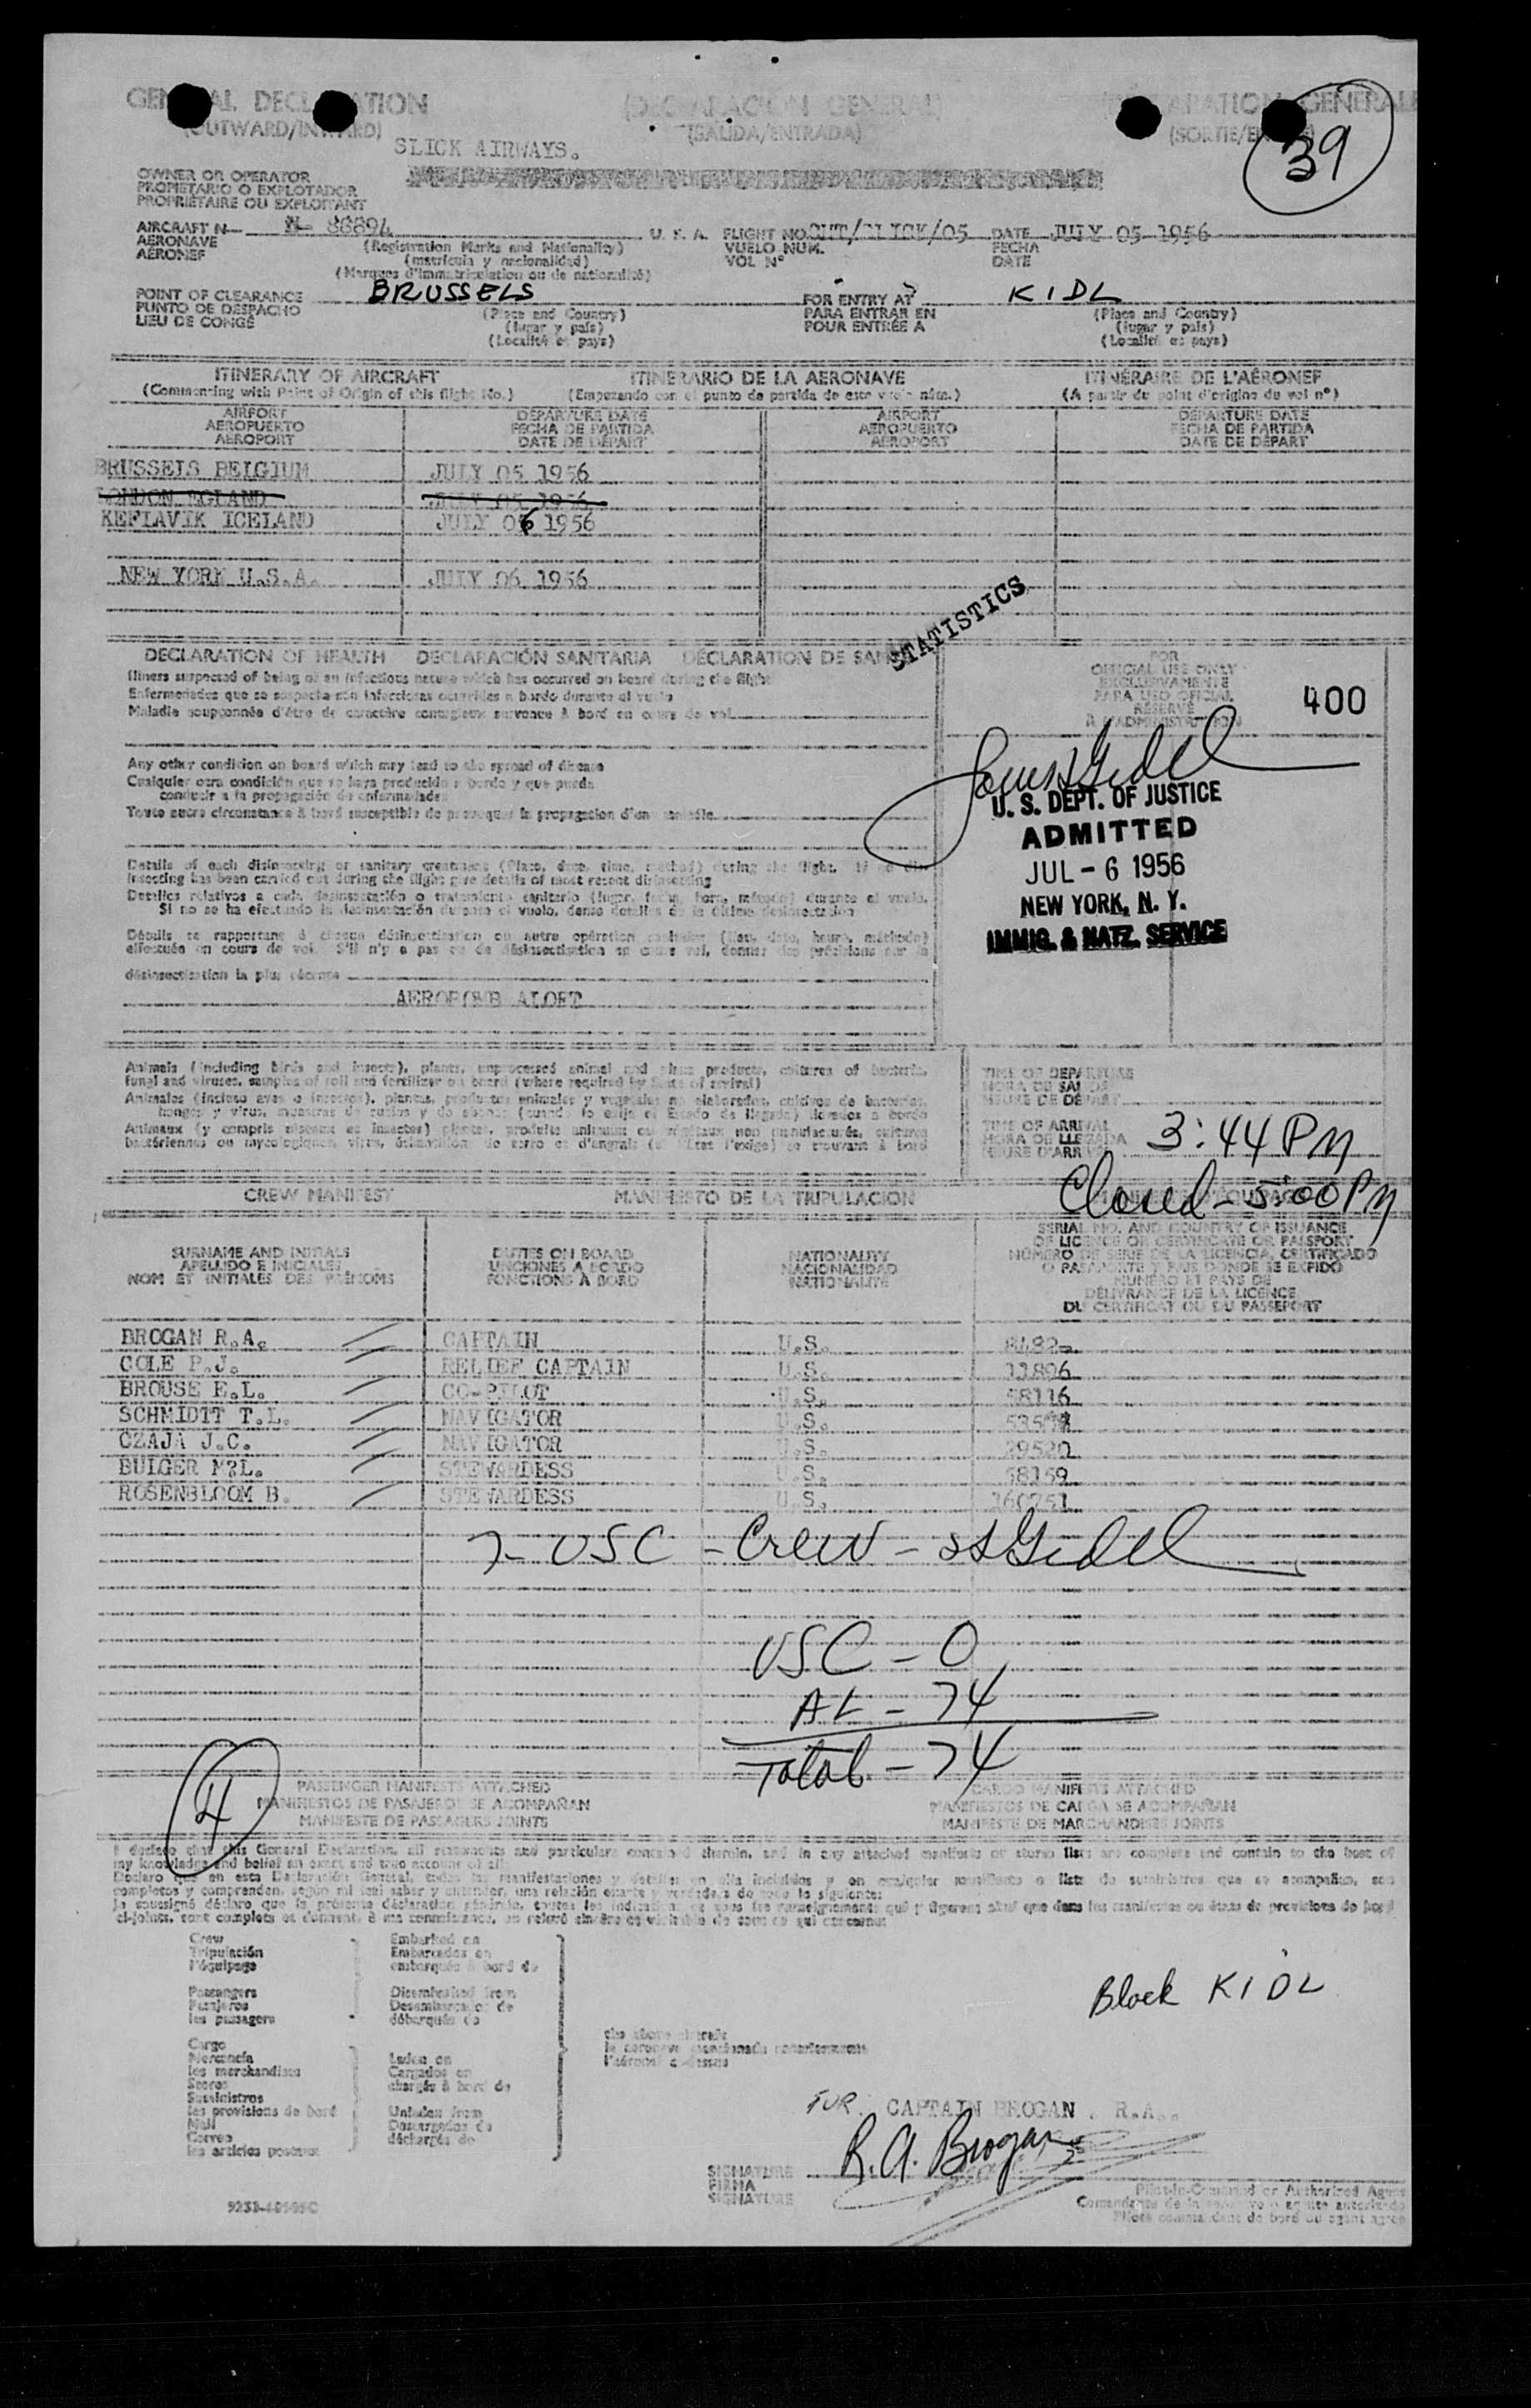 GENERAL DECLARATION (DECLARACION GENERAL) (DECLARATION GENERALE
(OUTWARD/INWARD) (SALIDA/ENTRADA) (SORTIE/
39
SLICK AIRWAYS.
OWNER OR OPERATOR
PROPIETARIO O EXPLOTADOR
PROPRIÉTAIRE OU EXPLOITANT
AIRCRAFT N— N- 86894 U. S. A. FLIGHT NO. /SLICK/05 DATE JULY 05 1956
AERONAVE (Registration Marks and Nationality) VUELO NUM. FECHA
AÉRONEF (matrícula y nacionalidad) VOL N° DATE
(Marques d'immatriculation ou de nationalité)
POINT OF CLEARANCE BRUSSELS FOR ENTRY AT KIDL
PUNTO DE DESPACHO (Place and Country) PARA ENTRAR EN (Place and Country)
LIEU DE CONGÉ (lugar y país) POUR ENTRÉE A (lugar y país)
(Localité et pays) (Localité et pays)
ITINERARY OF AIRCRAFT ITINERARIO DE LA AERONAVE ITINÉRAIRE DE L'AÉRONEF
(Commencing with Point of Origin of this flight No.) (Empezando con el punto de partida de este vuelo núm.) (A partir du point d'origine du vol n°)
AIRPORT DEPARTURE DATE AIRPORT DEPARTURE DATE
AEROPUERTO FECHA DE PARTIDA AEROPUERTO FECHA DE PARTIDA
AÉROPORT DATE DE DÉPART AÉROPORT DATE DE DÉPART
BRUSSELS BELGIUM JULY 05 1956
LONDON EGLAND JULY 05 1956
KEFLAVIK ICELAND JULY 06 1956
NEW YORK U.S.A. JULY 06 1956
STATISTICS
DECLARATION OF HEALTH DECLARACIÓN SANITARIA DÉCLARATION DE SAN
Illness suspected of being of an infectious nature which has occurred on board during the flight
Enfermedades que se sospecha son infecciosas ocurridas a bordo durante el vuelo
Maladie soupçonnée d'être de caractère contagieux survenue à bord en cours de vol
FOR
OFFICIAL USE ONLY
EXCLUSIVAMENTE
PARA USO OFICIAL
RÉSERVÉ
À L'ADMINISTRATION
400
Any other condition on board which may lead to the spread of disease
Cualquier otra condición que se haya producido a bordo y que pueda
conducir a la propagación de enfermedades
Toute autre circonstance à bord susceptible de provoquer la propagation d'une maladie
U. S. DEPT. OF JUSTICE
ADMITTED
JUL - 6 1956
NEW YORK, N. Y.
IMMIG. & NATZ. SERVICE
Details of each disinsecting or sanitary treatment (Place, date, time, method) during the flight. If no dis-
insecting has been carried out during the flight give details of most recent disinsecting
Detalles relativos a cada desinsectación o tratamiento sanitario (lugar, fecha, hora, método) durante el vuelo.
Si no se ha efectuado la desinsectación durante el vuelo, dense detalles de la última desinsectación
Détails se rapportant à chaque désinsectisation ou autre opération sanitaire (lieu, date, heure, méthode)
effectuée en cours de vol. S'il n'y a pas eu de désinsectisation en cours vol, donner des précisions sur la
désinsectisation la plus récente
ALOFT
Animals (including birds and insects), plants, unprocessed animal and plant products, cultures of bacteria,
fungi and viruses, samples of soil and fertilizer on board (where required by State of arrival)
Animales (incluso aves o insectos), plantas, productos animales y vegetales no elaborados, cultivos de bacterias,
hongos y virus, muestras de suelos y de abonos (cuando lo exija el Estado de llegada) llevados a bordo
Animaux (y compris oiseaux et insectes) plantes, produits animaux ou végétaux non manufacturés, cultures
bactériennes ou mycologiques, virus, échantillons de terre et d'engrais (si l'Etat l'exige) se trouvant à bord
TIME OF DEPARTURE
HORA DE SALIDA
HEURE DE DÉPART
TIME OF ARRIVAL
HORA DE LLEGADA 3:44 PM
HEURE D'ARRIVÉE
Closed - 5:00 PM
CREW MANIFEST MANIFIESTO DE LA TRIPULACION
SURNAME AND INITIALS DUTIES ON BOARD NATIONALITY SERIAL NO. AND COUNTRY OF ISSUANCE
APELLIDO E INICIALES FUNCIONES A BORDO NACIONALIDAD OF LICENCE OR CERTIFICATE OR PASSPORT
NOM ET INITIALES DES PRÉNOMS FONCTIONS À BORD NATIONALITÉ NÚMERO DE SERIE DE LA LICENCIA, CERTIFICADO
O PASAPORTE Y PAIS DONDE SE EXPIDÓ
NUMÉRO ET PAYS DE
DÉLIVRANCE DE LA LICENCE
DU CERTIFICAT OU DU PASSEPORT
BROGAN R.A. CAPTAIN U.S.
COLE P.J. RELIEF CAPTAIN U.S. 11896
BROUSE E.L. CO-PILOT U.S. 58116
SCHMIDTT T.L. NAVIGATOR U.S.
CZAJA J.C. NAVIGATOR U.S. 29520
BULGER M?L. STEWARDESS U.S. 58159
ROSENBLOOM B. STEWARDESS U.S. 160751
7- USC - Crew -
USC - 0
AL - 74
Total - 74
4
PASSENGER MANIFESTS ATTACHED CARGO MANIFESTS ATTACHED
MANIFIESTOS DE PASAJEROS SE ACOMPAÑAN MANIFIESTOS DE CARGA SE ACOMPAÑAN
MANIFESTE DE PASSAGERS JOINTS MANIFESTE DE MARCHANDISES JOINTS
I declare that this General Declaration, all statements and particulars contained therein, and in any attached manifests or stores lists are complete and contain to the best of
my knowledge and belief an exact and true account of all:
Declaro que en esta Declaración General, todas las manifestaciones y detalles en ella incluidos y en cualquier manifiesto o lista de suministros que se acompañan, son
completos y comprenden, según mi leal saber y entender, una relación exacta y verdadera de todo lo siguiente:
Je soussigné déclare que la présente déclaration générale, toutes les indications et tous les renseignements qui y figurent ainsi que dans les manifestes ou états de provisions de bord
ci-joints, sont complets et donnent, à ma connaissance, un relevé sincère et véritable de tout ce qui concerne:
Crew Embarked on
Tripulación Embarcados en
l'équipage embarqués à bord de
Passengers Disembarked from
Pasajeros Desembarcados de
les passagers débarqués de
Block KIDL
Cargo
Mercancía Laden on
les marchandises Cargados en
Stores chargés à bord de
Suministros
les provisions de bord Unladen from
Mail Descargados de
Correo déchargés de
les articles postaux
the above aircraft
la aeronave mencionada anteriormente
l'aéronef ci-dessus
FOR. CAPTAIN BROGAN . R.A..
SIGNATURE R. A. Brogan
FIRMA
SIGNATURE
Pilot-in-Command or Authorized Agent
Comandante de la aeronave o agente autorizado
Pilote commandant de bord ou agent agréé